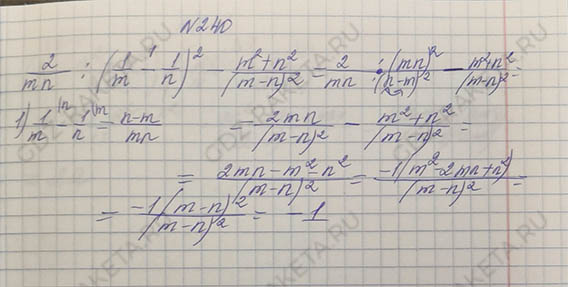 N240
2/mn : (1/m - 1/n)² - m²+n²/(m-n)² = 2/mn : (mn)²/(n-m)² - m²+n²/(m-n)² =
1) 1/m \n - 1/n \m = n-m/mn = 2mn/(m-n)² - m²+n²/(m-n)² =
= 2mn-m²-n²/(m-n)² = -1(m²-2mn+n²)/(m-n)² =
= -1(m-n)²/(m-n)² = -1